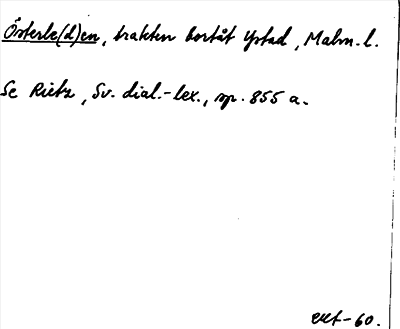 Österle(d)en, trakten bortåt Ystad, Malm. l.
Se Rietz, Sv. dial.-lex., sp. 855 a.
-60.